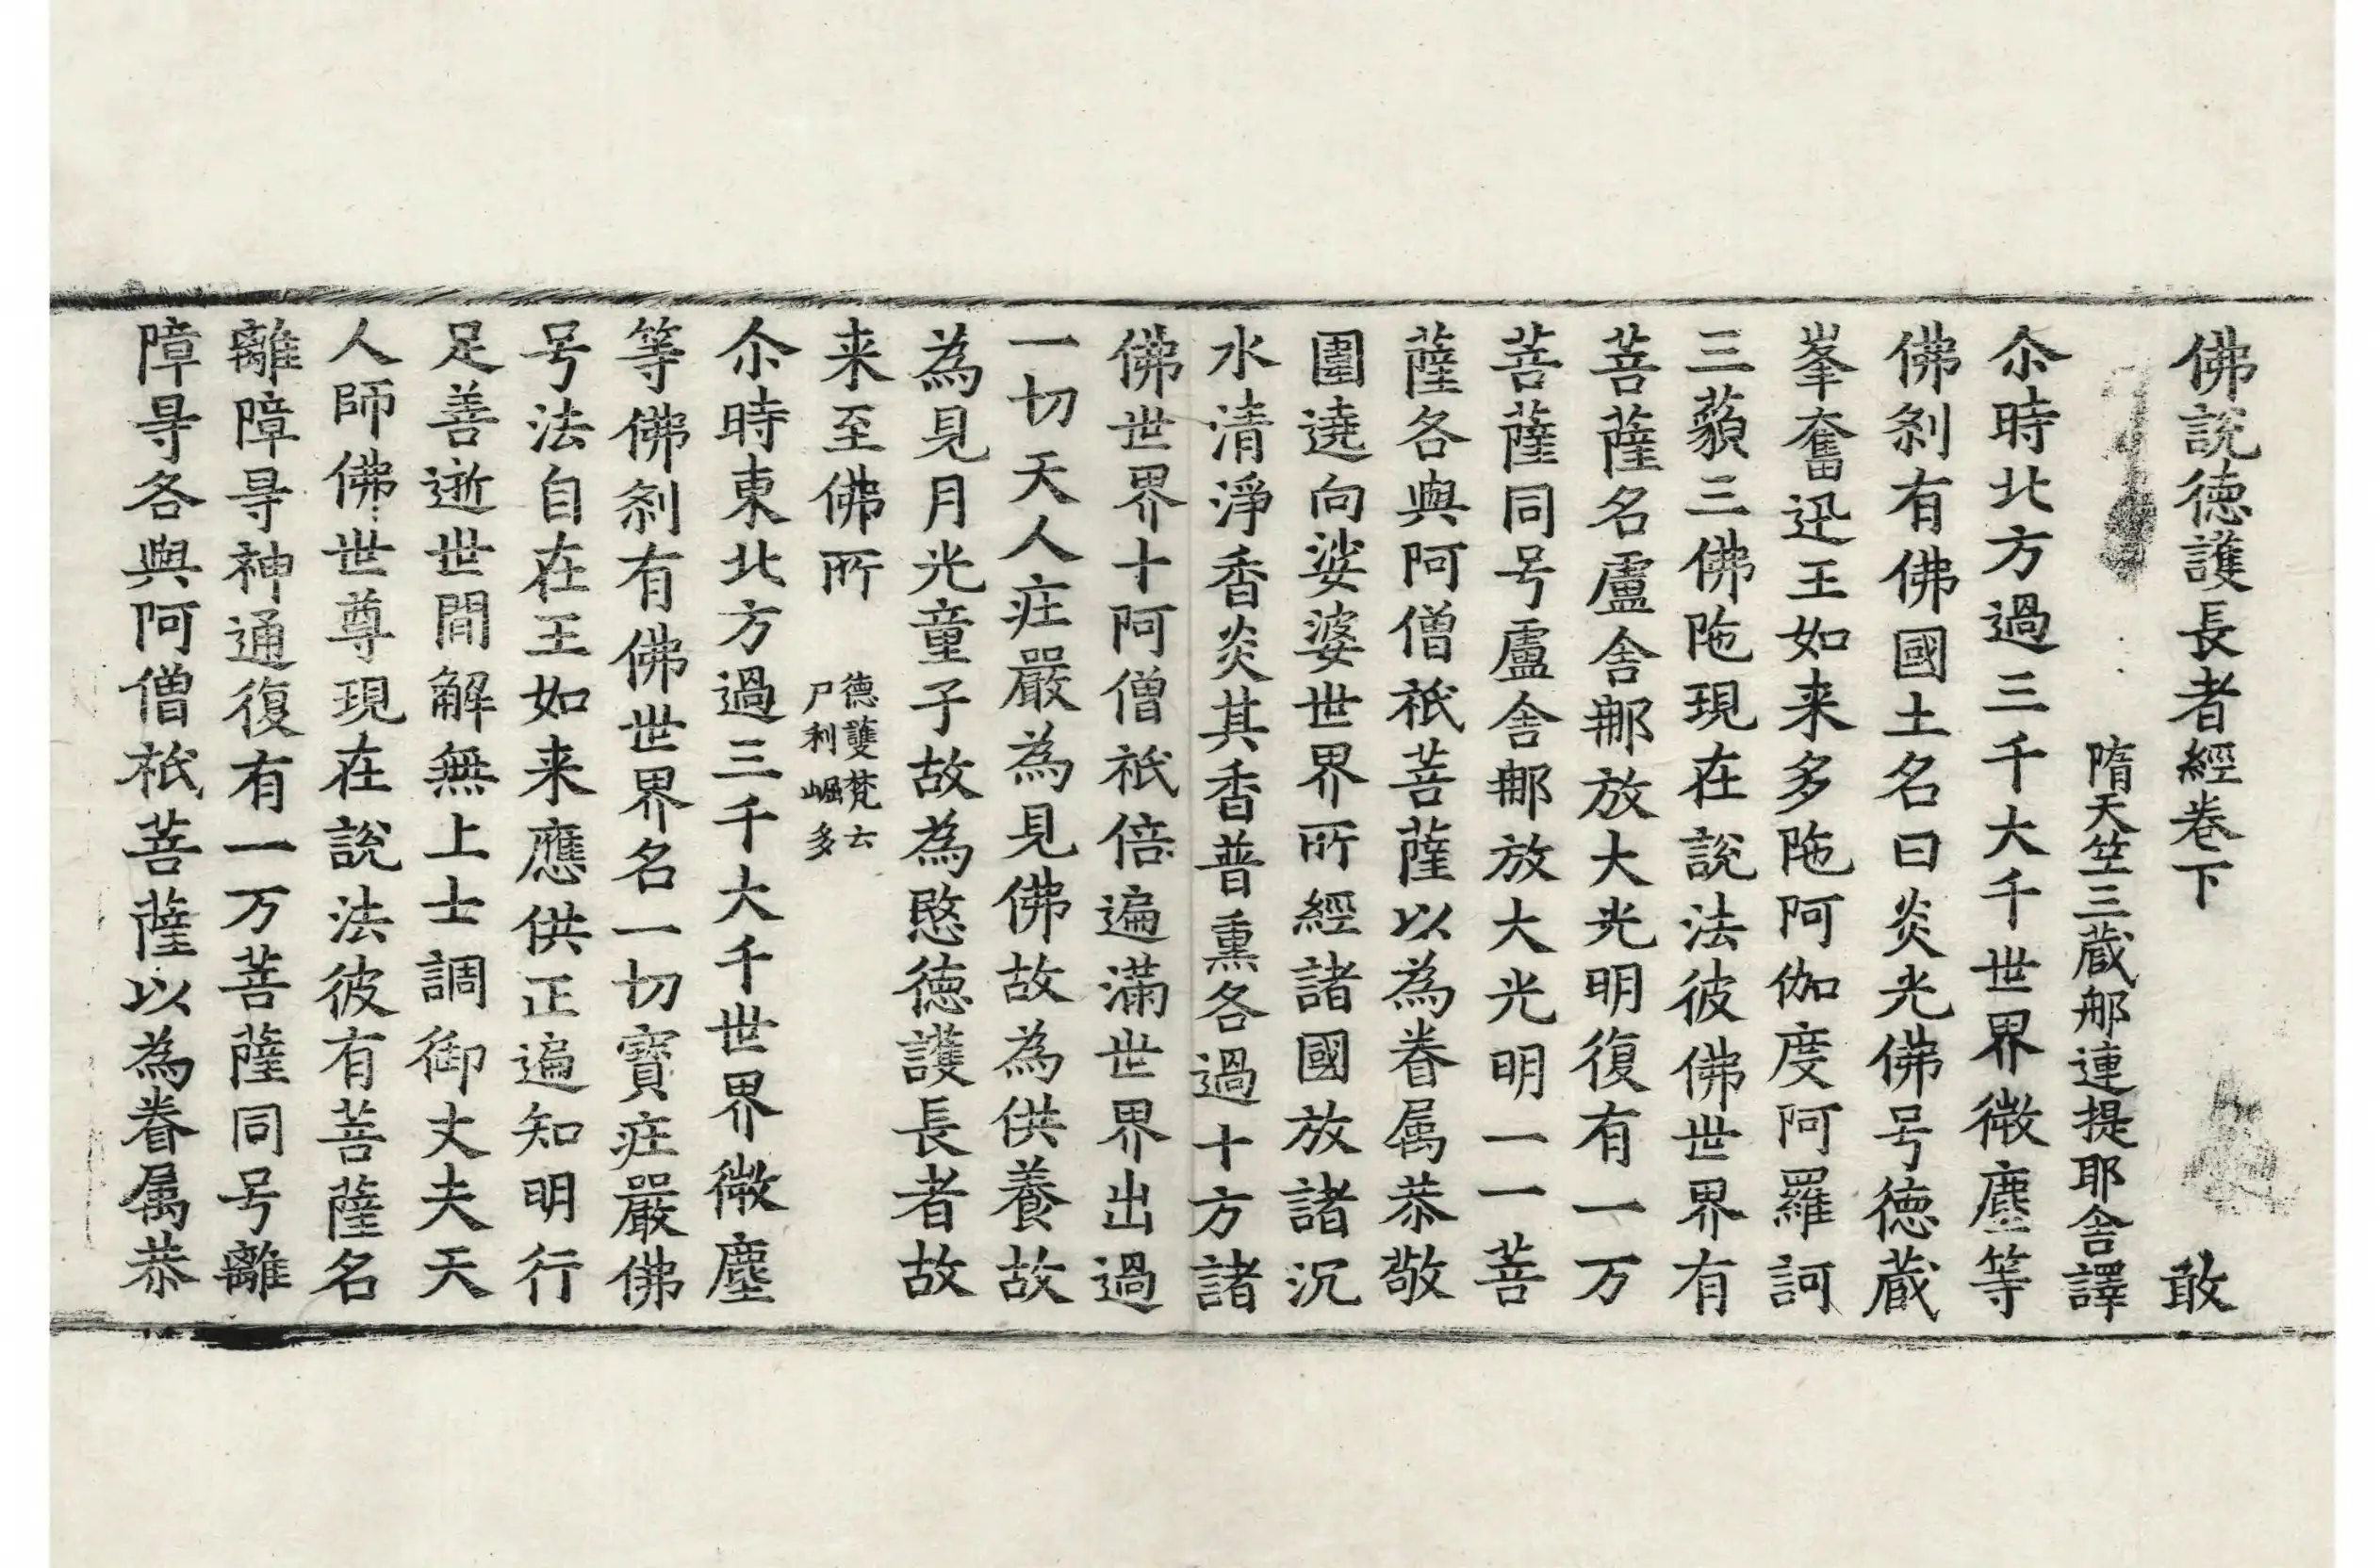 佛說德護長者經卷下　敢
隋天竺三藏郍連提耶舍譯
尒時北方過三千大千世界微塵等
佛剎有佛國土名曰炎光佛号德藏
峯奮迅王如来多陁阿伽度阿羅訶
三藐三佛陁現在說法彼佛世界有
菩薩名盧舍郍放大光明復有一万
菩薩同号盧舍郍放大光明一一菩
薩各與阿僧祇菩薩以為眷属恭敬
圍遶向娑婆世界所經諸國放諸沉
水清淨香炎其香普熏各過十方諸
佛世界十阿僧祇倍遍滿世界出過
一切天人莊嚴為見佛故為供養故
為見月光童子故為愍德護長者故
来至佛所
德護梵云
尸利崛多
尒時東北方過三千大千世界微塵
等佛剎有佛世界名一切寶莊嚴佛
号法自在王如来應供正遍知明行
足善逝世間解無上士調御丈夫天
人師佛世尊現在說法彼有菩薩名
離障㝵神通復有一万菩薩同号離
障㝵各與阿僧祇菩薩以為眷属恭